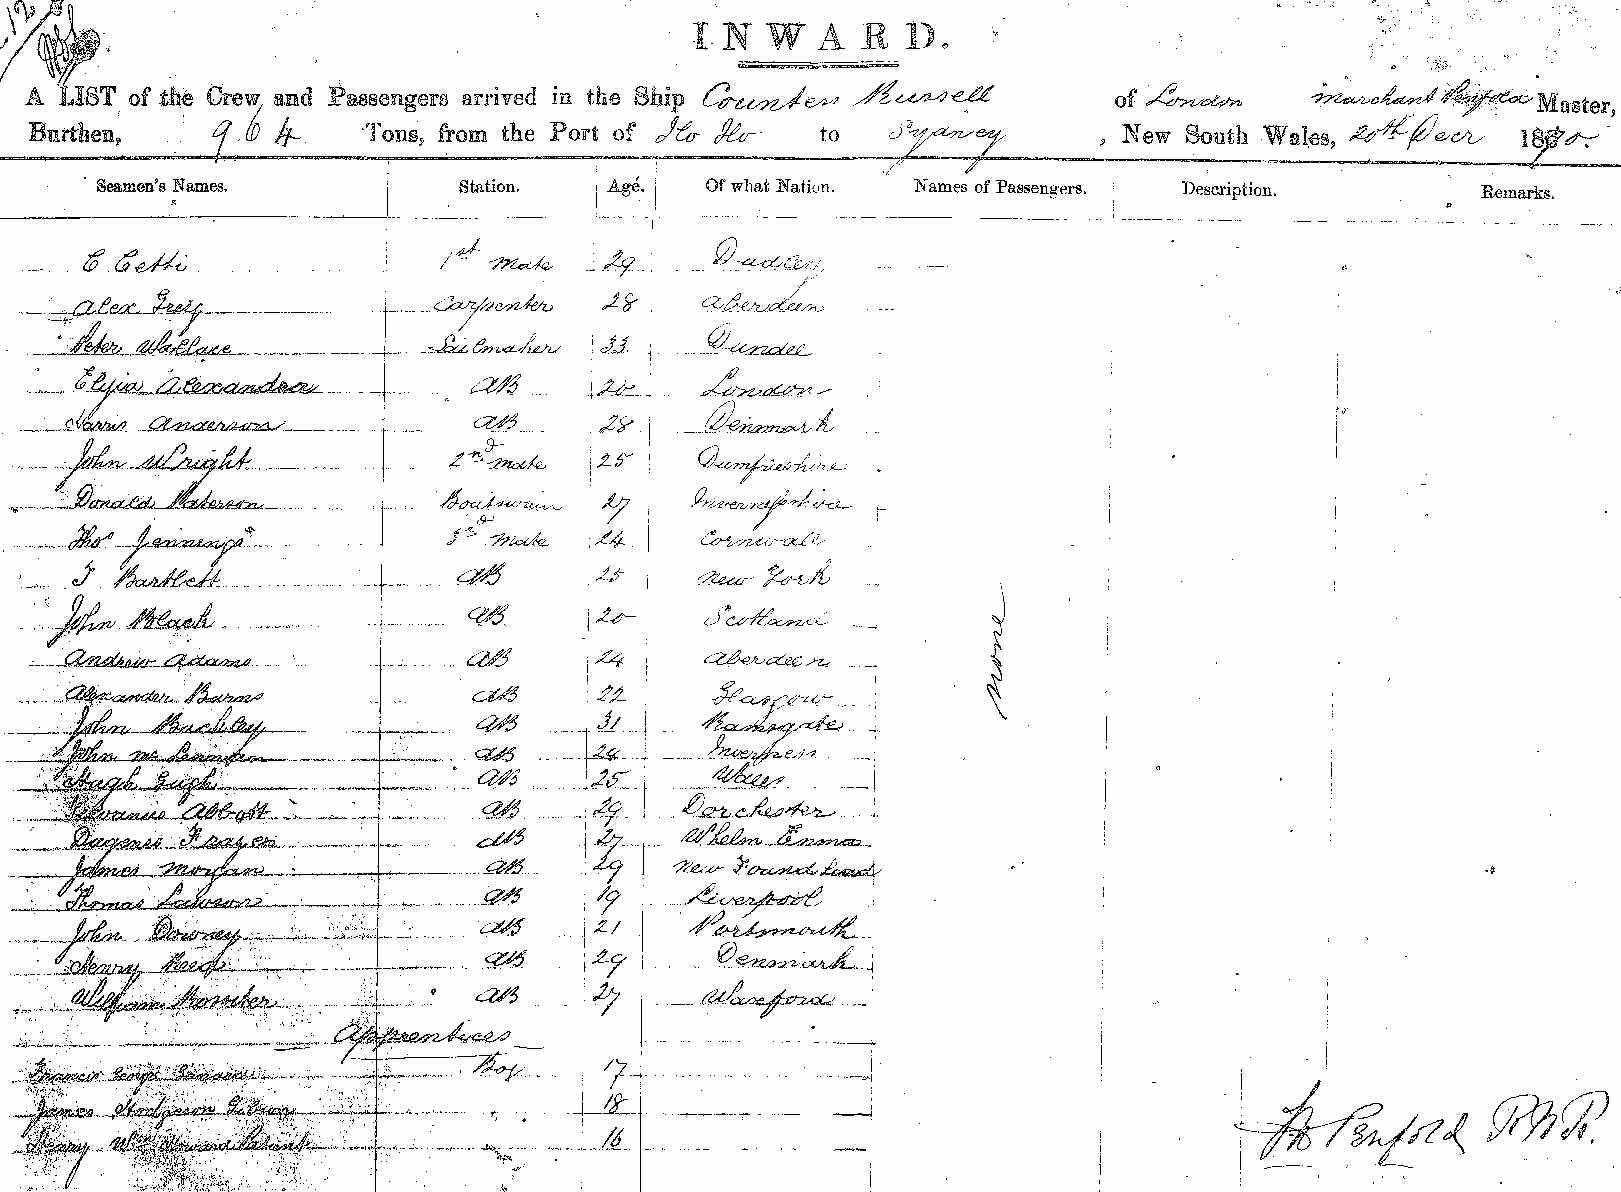 INWARD.
A LIST of the Crew and Passengers arrived in the Ship Countess Russell of London Marchant Penfold Master,
Burthen, 964 Tons, from the Port of Ilo Ilo to Sydney, New South Wales, 20th Decr 1870.
Seamen's Names. Station. Age. Of what Nation. Names of Passengers. Description. Remarks.
C Cetti 1st Mate 29 Dudley
Alex Greig Carpenter 28 Aberdeen
Peter Wallace Sailmaker 33 Dundee
Elijia Alexander AB 20 London
Harris Anderson AB 28 Denmark
John Wright 2nd Mate 25 Dumfrieshire
Donald Paterson Boatswain 27 Invernesshire
Thos Jennings 3rd Mate 24 Cornwall
T Bartlett AB 25 New York
John Black AB 20 Scotland
None
Andrew Adams AB 24 Aberdeen
Alexander Burns AB 22 Glasgow
John Buckley AB 31 Ramsgate
John McLennan AB 24 Inverness
Hugh Hugh AB 25 Wales
Abbott AB 29 Dorchester
Frazen AB 27
James Morgan AB 29 New Found Land
Thomas Lawson AB 19 Liverpool
John Downey AB 21 Portsmouth
Henry AB 29 Denmark
William AB 27
Apprentices
Francis George Boy 17
James Hodgson Gibson " 18
Henry Wm Howard " 16
M Penford R.N.R.